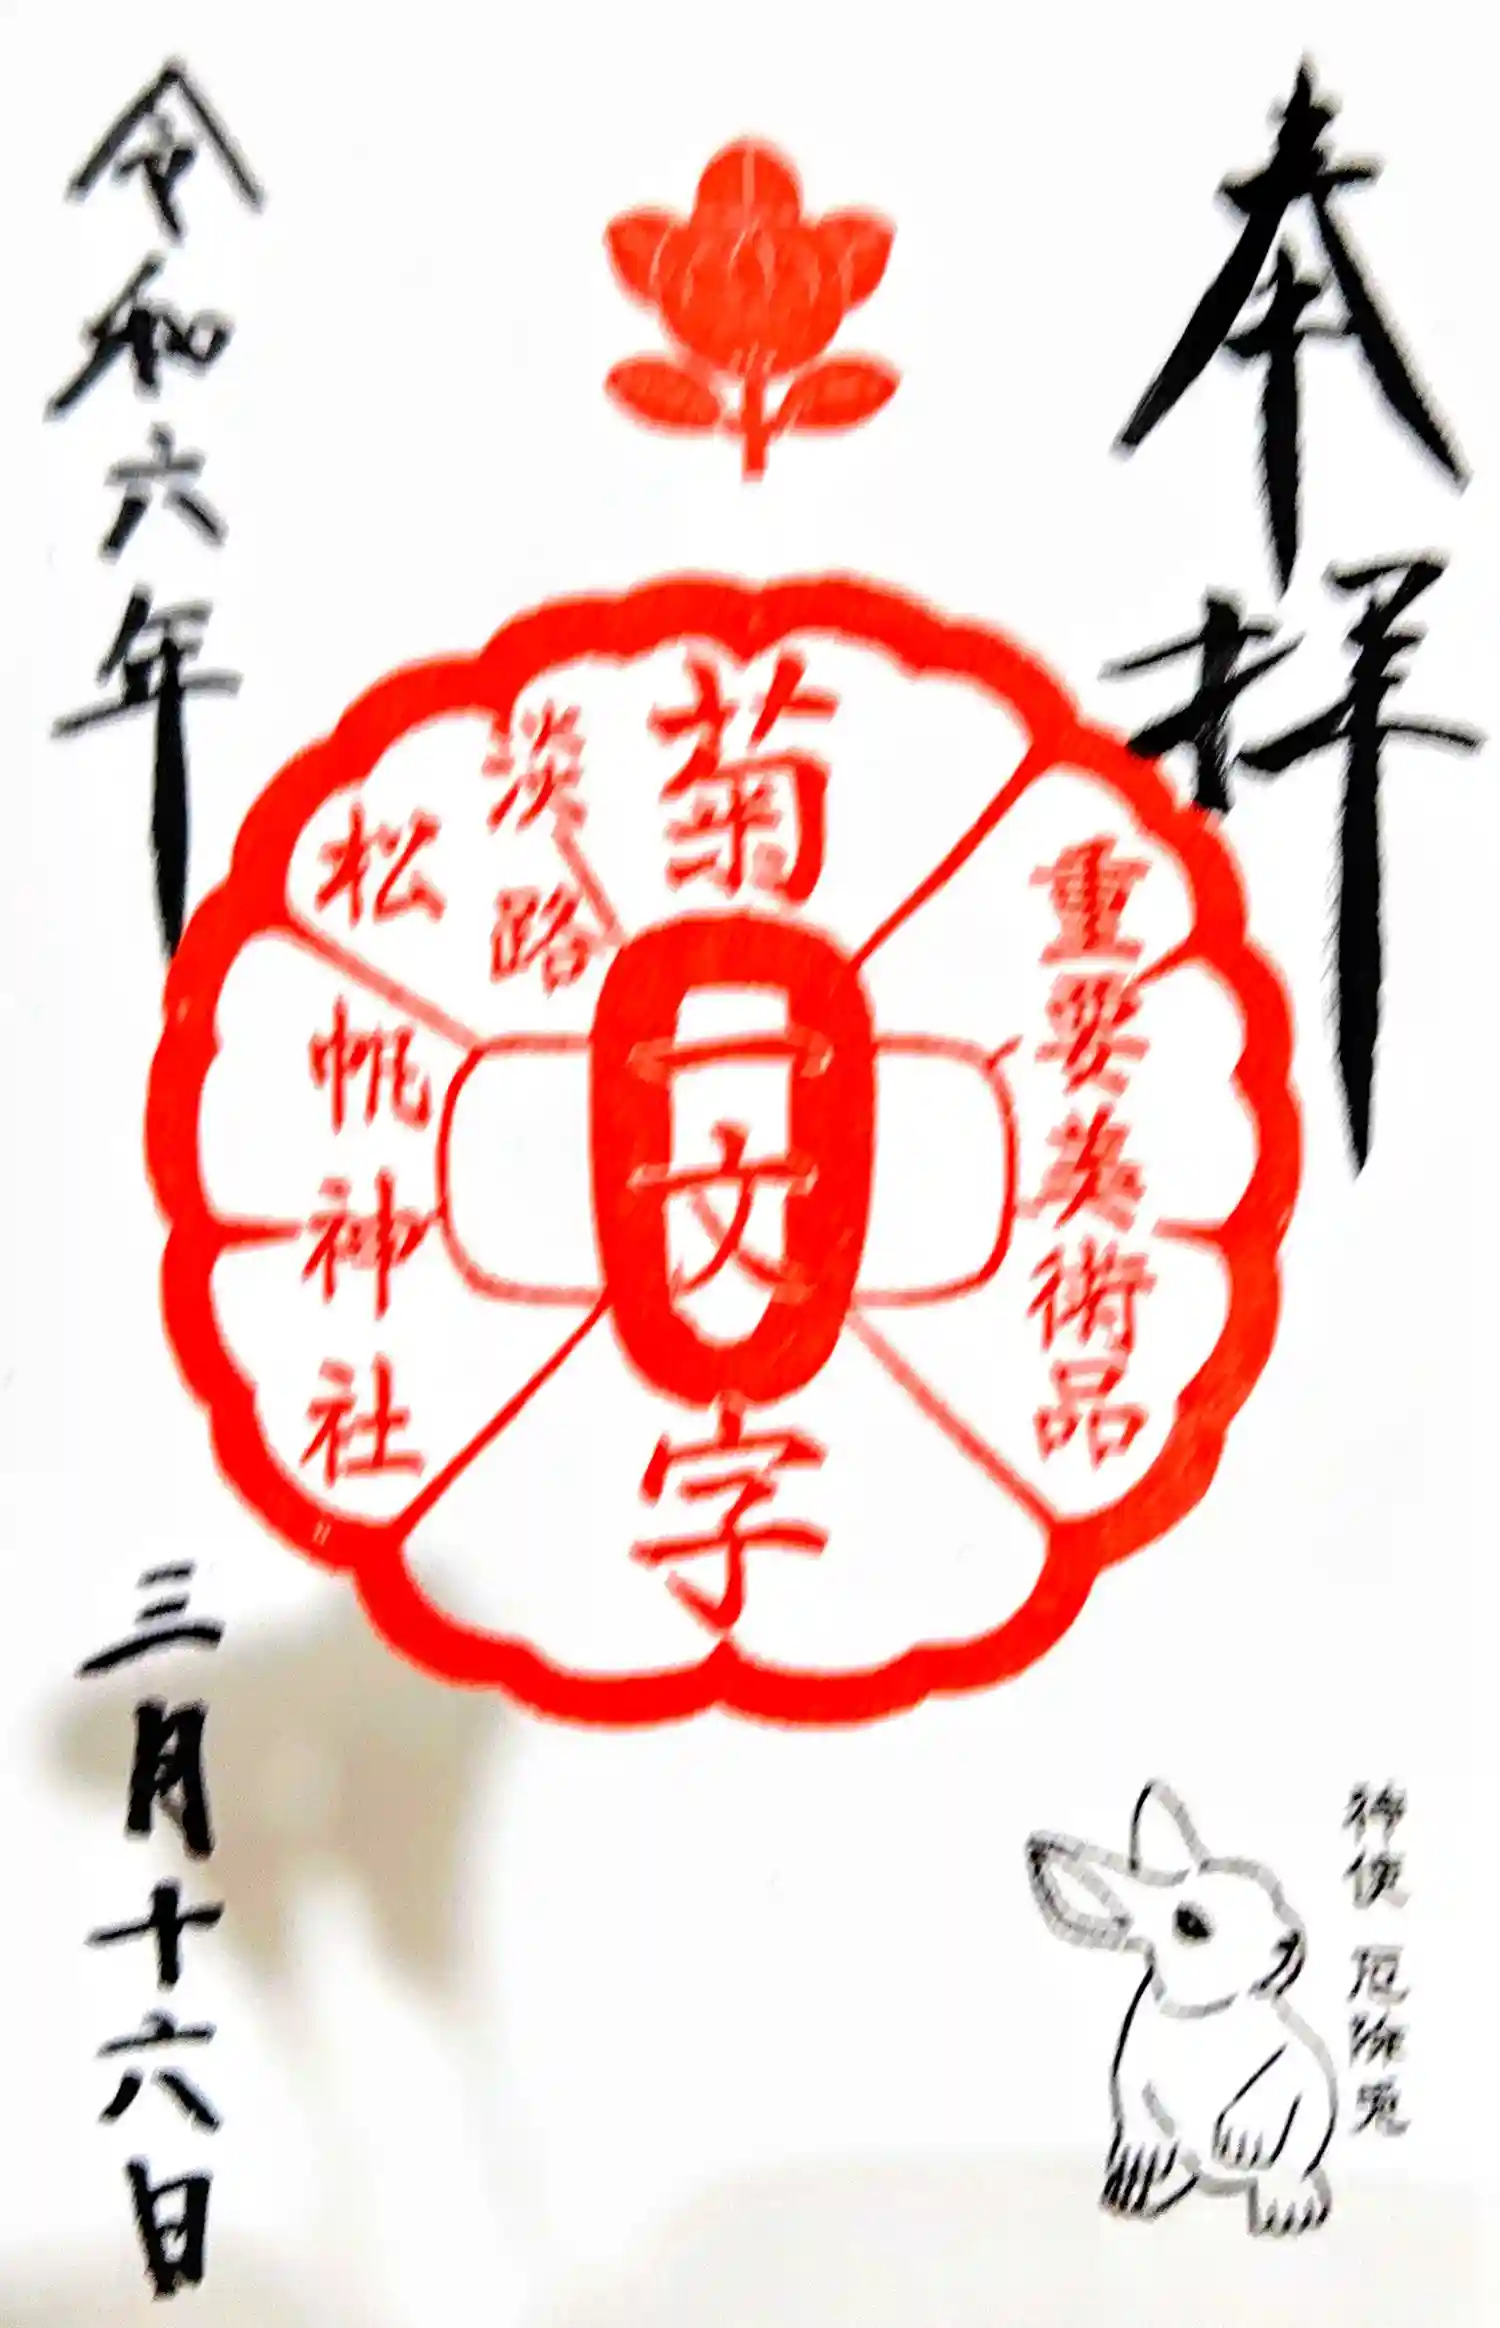 奉拝
重要美術品
菊一文字
淡路
松帆神社
令和六年
三月十六日
神使 厄除兎